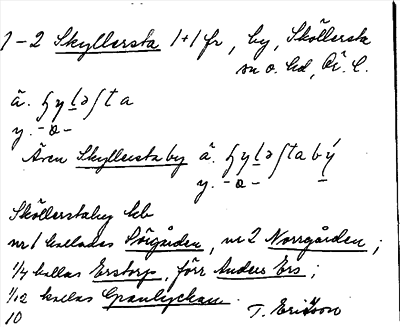 1-2 Skyllersta 1+1 fr, by, Sköllersta
sn o. hd, Ör. l.
ä. ʃyləʃta
y. -ə-
Även Skyllersta by ä. ʃyləʃtabý
y. -ə-
Sköllerstaby kb
nr 1 kallades Sörgården, nr 2 Norrgården;
1/4 kallas Erstorp, förr Anders Ers;
1/12 kallas Granlyckan.
10 T. Ericsson